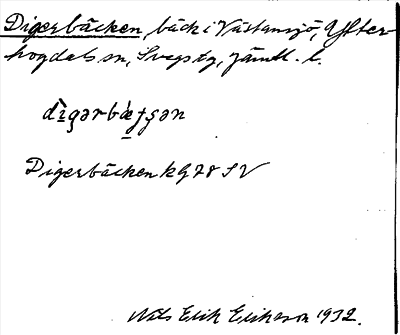 Digerbäcken, bäck i Västansjö, Ytter-
hogdals sn, Svegs tg, Jämtl. l.
dìgərbæ̀ʃʂən
Digerbäcken kG 28 SV
Nils Erik Erikson 1932.